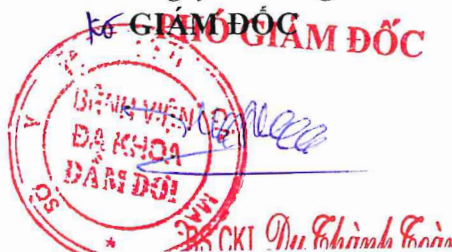 GIÁM ĐỐC
PHÓ GIÁM ĐỐC
SỞ Y
BỆNH VIỆN
ĐA KHOA
ĐẦM DƠI
BS.CKI. Du Thành Toàn